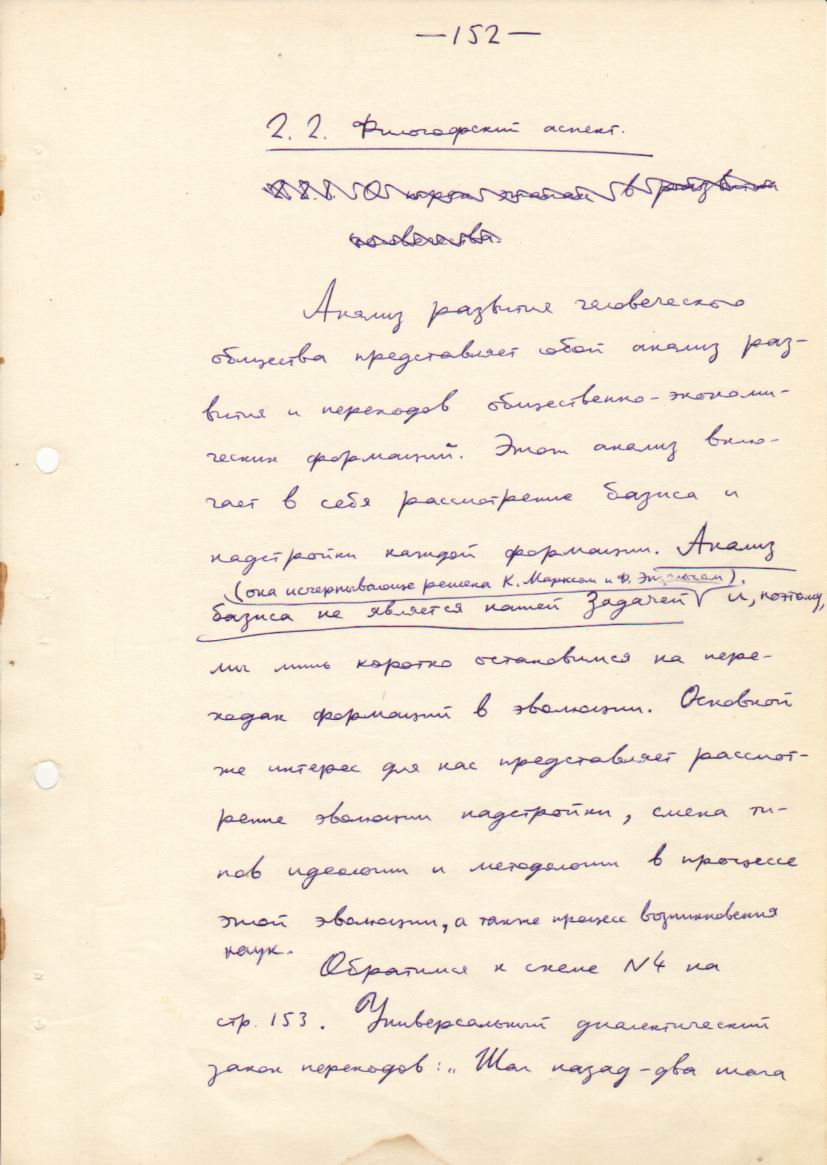 —152—
2.2. Философский аспект.
Анализ развития человеческого
общества представляет собой анализ раз-
вития и переходов общественно-экономи-
ческих формаций. Этот анализ вклю-
чает в себя рассмотрение базиса и
надстройки каждой формации. Анализ
(она исчерпывающе решена К. Марксом и Ф. Энгельсом).
базиса не является нашей задачей и, поэтому,
мы лишь коротко остановимся на пере-
ходах формаций в эволюции. Основной
же интерес для нас представляет рассмот-
рение эволюции надстройки, смена ти-
пов идеологии и методологии в процессе
этой эволюции, а также процесс возникновения
наук.
Обратимся к схеме N4 на
стр. 153. Универсальный диалектический
закон переходов: „Шаг назад - два шага